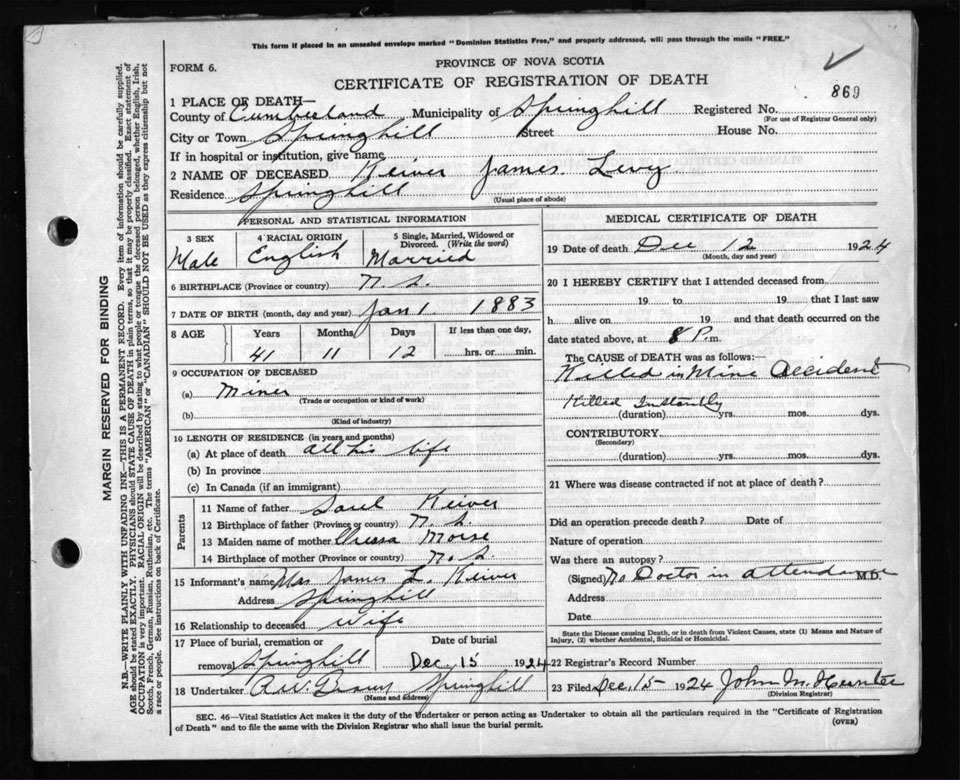 This form if placed in an unsealed envelope marked "Dominion Statistics Free," and properly addressed, will pass through the mails "FREE."
FORM 6.
PROVINCE OF NOVA SCOTIA
CERTIFICATE OF REGISTRATION OF DEATH
869
1 PLACE OF DEATH—
County of Cumberland Municipality of Springhill Registered No.
(For use of Registrar General only)
City or Town Springhill Street House No.
If in hospital or institution, give name
2 NAME OF DECEASED Keiver James Levy
Residence Springhill
(Usual place of abode)
PERSONAL AND STATISTICAL INFORMATION
3 SEX 4 RACIAL ORIGIN 5 Single, Married, Widowed or Divorced. (Write the word)
Male English Married
6 BIRTHPLACE (Province or country) N.S.
7 DATE OF BIRTH (month, day and year) Jan 1. 1883
8 AGE Years Months Days If less than one day,
41 11 12 hrs. or min.
9 OCCUPATION OF DECEASED
(a) Miner
(Trade or occupation or kind of work)
(b)
(Kind of industry)
10 LENGTH OF RESIDENCE (in years and months)
(a) At place of death all his life
(b) In province
(c) In Canada (if an immigrant)
Parents
11 Name of father Saul Keiver
12 Birthplace of father (Province or country) N.S.
13 Maiden name of mother Morse
14 Birthplace of mother (Province or country) N.S.
15 Informant's name Mrs James L. Keiver
Address Springhill
16 Relationship to deceased Wife
17 Place of burial, cremation or removal Springhill Date of burial Dec 15 1924
18 Undertaker Springhill
(Name and address)
MEDICAL CERTIFICATE OF DEATH
19 Date of death Dec 12 1924
(Month, day and year)
20 I HEREBY CERTIFY that I attended deceased from
19 to 19 that I last saw
h alive on 19 and that death occurred on the
date stated above, at 8 P. m.
The CAUSE OF DEATH was as follows:—
Killed in Mine Accident
Killed Instantly
(duration) yrs. mos. dys.
CONTRIBUTORY
(Secondary)
(duration) yrs. mos. dys.
21 Where was disease contracted if not at place of death?
Did an operation precede death? Date of
Nature of operation
Was there an autopsy?
(Signed) No Doctor in attendance M.D.
Address
Date
State the Disease causing Death, or in death from Violent Causes, state (1) Means and Nature of
Injury, (2) whether Accidental, Suicidal or Homicidal.
22 Registrar's Record Number
23 Filed Dec, 15 1924 John M.
(Division Registrar)
SEC. 46—Vital Statistics Act makes it the duty of the Undertaker or person acting as Undertaker to obtain all the particulars required in the "Certificate of Registration
of Death" and to file the same with the Division Registrar who shall issue the burial permit.
(OVER)
MARGIN RESERVED FOR BINDING
N.B.—WRITE PLAINLY WITH UNFADING INK—THIS IS A PERMANENT RECORD. Every item of information should be carefully supplied.
AGE should be stated EXACTLY. PHYSICIANS should STATE CAUSE OF DEATH in plain terms, so that it may be properly classified. Exact statement of
OCCUPATION is very important. RACIAL ORIGIN will be described by stating to what people or tongue the deceased person belonged, whether English, Irish,
Scotch, French, German, Russian, Ruthenian, etc. The terms "AMERICAN" or "CANADIAN" SHOULD NOT BE USED as they express citizenship but not
a race or people. See instructions on back of Certificate.